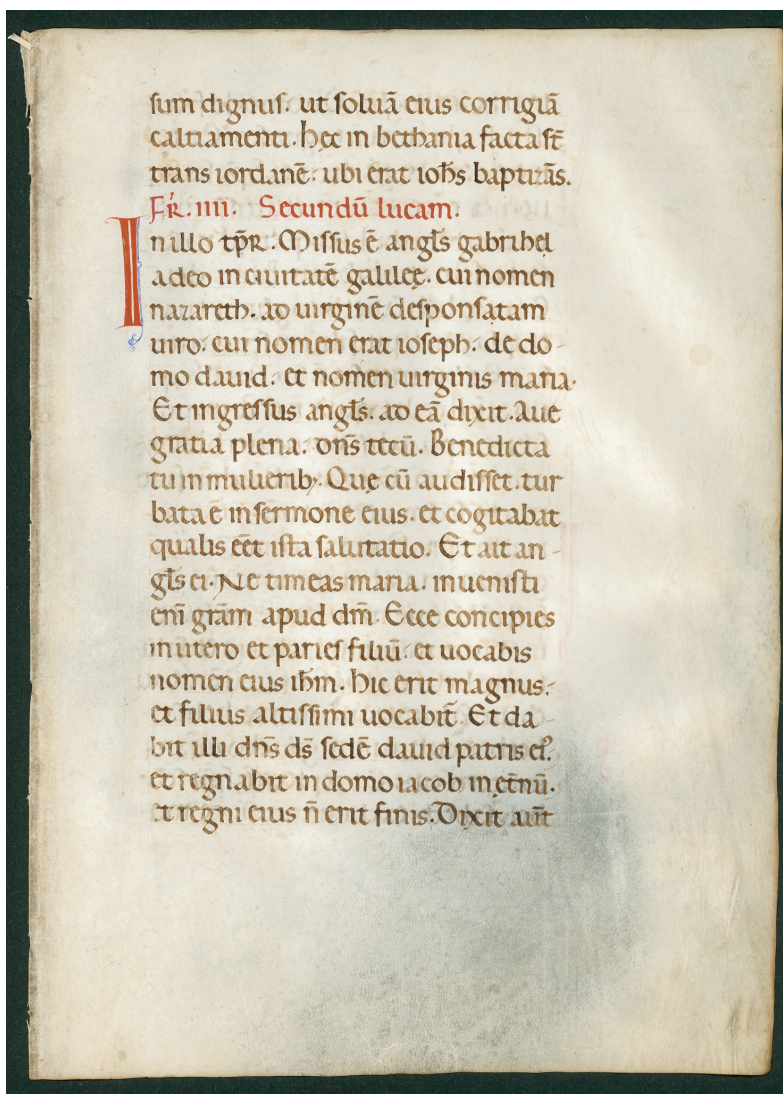 sum dignus. ut soluā eius corrigiā
caltiamenti. hęc in bethania facta st̄
trans iordanē. ubi erat ioħs baptizās.
FR̄. iiii. Secundū lucam.
In illo tp̄R. Missus ē angl̄s gabrihel
a deo in ciuitatē galileę. cui nomen
nazareth. ad uirginē desponsatam
uiro. cui nomen erat ioseph. de do-
mo dauid. et nomen uirginis maria.
Et ingressus angl̄s. ad eā dixit. Aue
gratia plena. dn̄s tecū. Benedicta
tu in mulierib;. Quę cū audisset. tur
bata ē in sermone eius. et cogitabat
qualis eēt ista salutatio. Et ait an-
gl̄s ei. Ne timeas maria. inuenisti
eni̅ grām apud dm̄. Ecce concipies
in utero et paries filiū. et uocabis
nomen eius ihm̄. hic erit magnus.
et filius altissimi uocabit̄. Et da-
bit illi dn̄s ds̄ sedē dauid patris ei⁹.
et regnabit in domo iacob in ęt̄nū.
et regni eius n̄ erit finis. Dixit aut̄